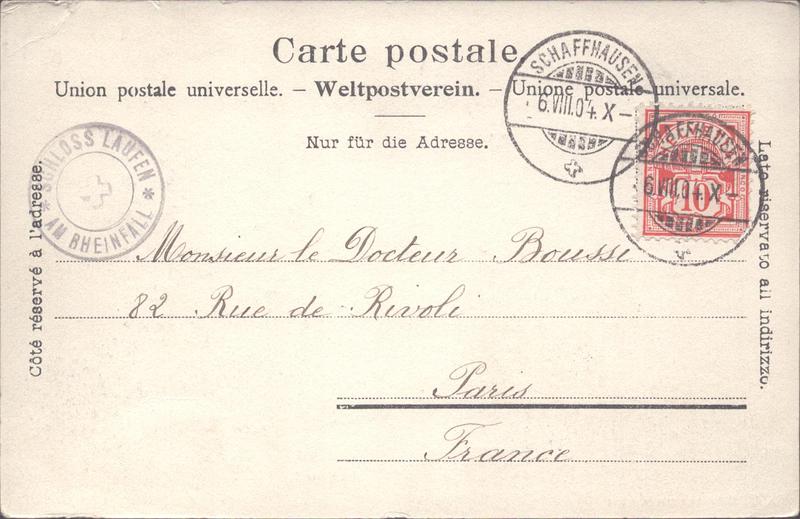 Carte postale.
Union postale universelle. – Weltpostverein. – Unione postale universale.
Nur für die Adresse.
SCHAFFHAUSEN
6.VIII.04. X –
SCHAFFHAUSEN
6.VIII.04. X –
10
* SCHLOSS LAUFEN *
AM RHEINFALL
Côté réservé à l'adresse.
Lato riservato all indirizzo.
Monsieur le Docteur Boussi
82 Rue de Rivoli
Paris
France